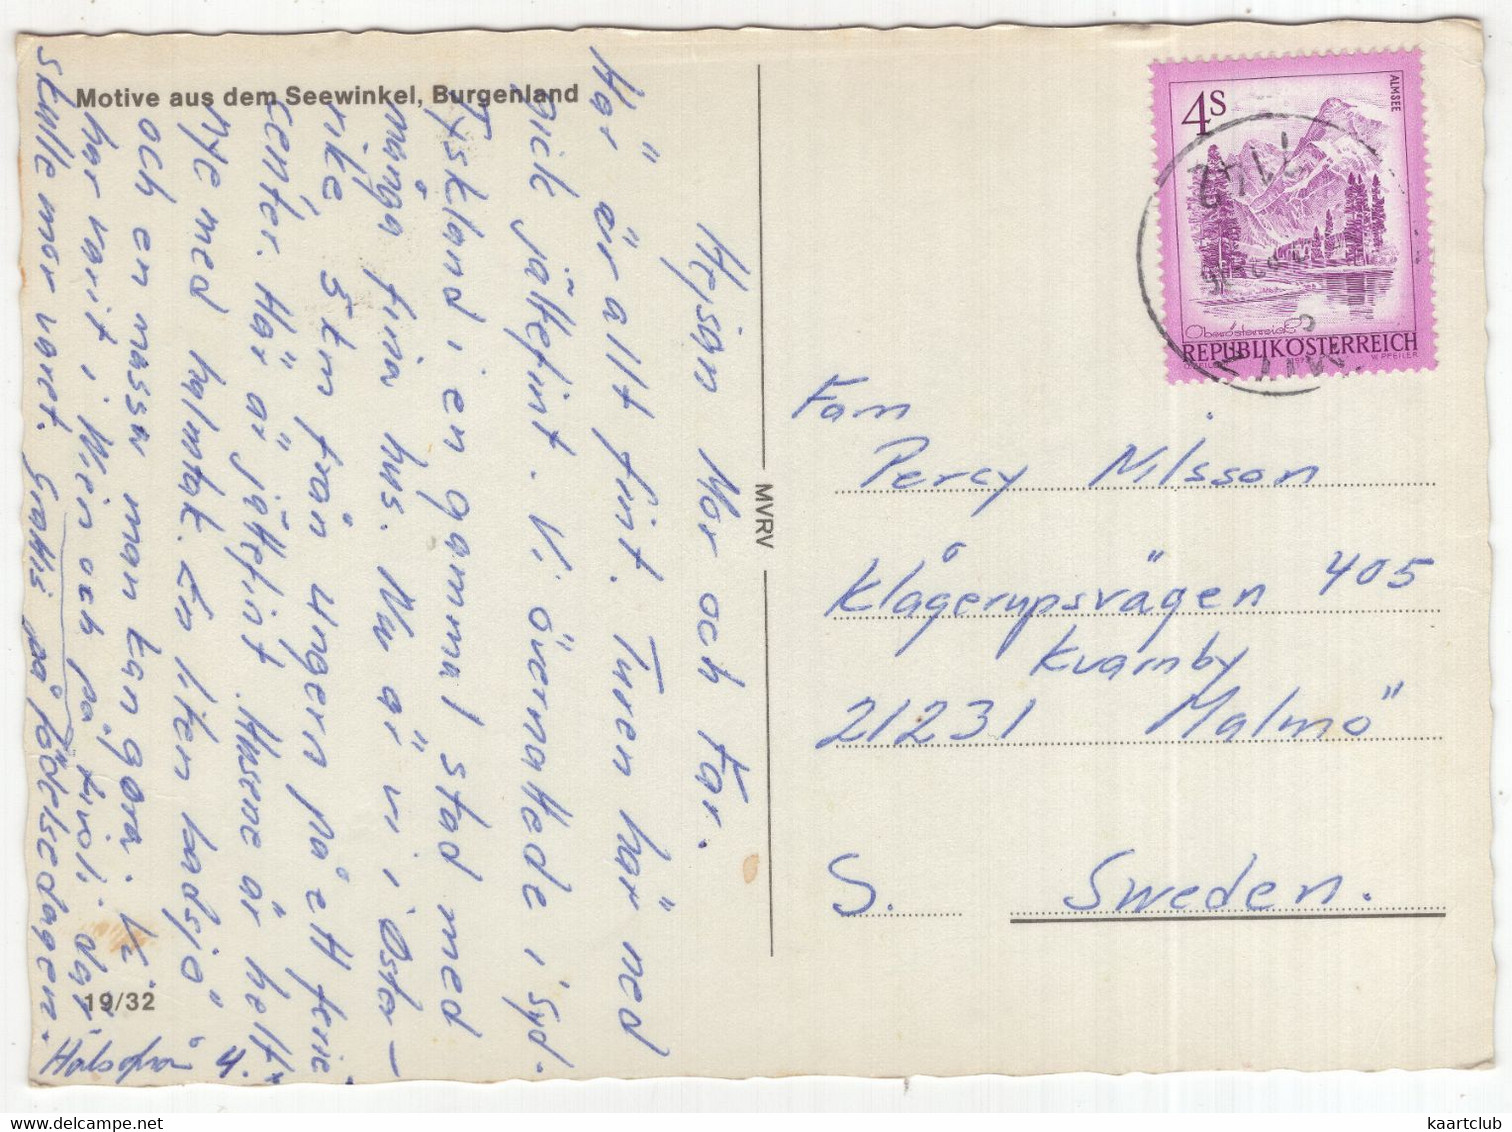 Motive aus dem Seewinkel, Burgenland
Hejsan Mor och Far.
Här är allt fint. Turen här ned
gick jättefint. Vi övernattede i Syd-
Tyskland i en gammal stad med
många fina hus. Nu är vi i Öster-
rike 5 km från Ungern på ett ferie
center. Här är jättefint. Husene är helt
nye med halmtak. En liten badsjö
och en massa man kan göra. Vi
har varit i Wien och på tivoli där.
skulle mor varet. Grattis på födelsedagen.
19/32
MVRV
4S
ALMSEE
7142
Oberösterreich
REPUBLIK ÖSTERREICH
W. PFEILER
Fam
Percy Nilsson
Klågerupsvägen 405
Kvarnby
21231 Malmö
S. Sweden.
kaartclub